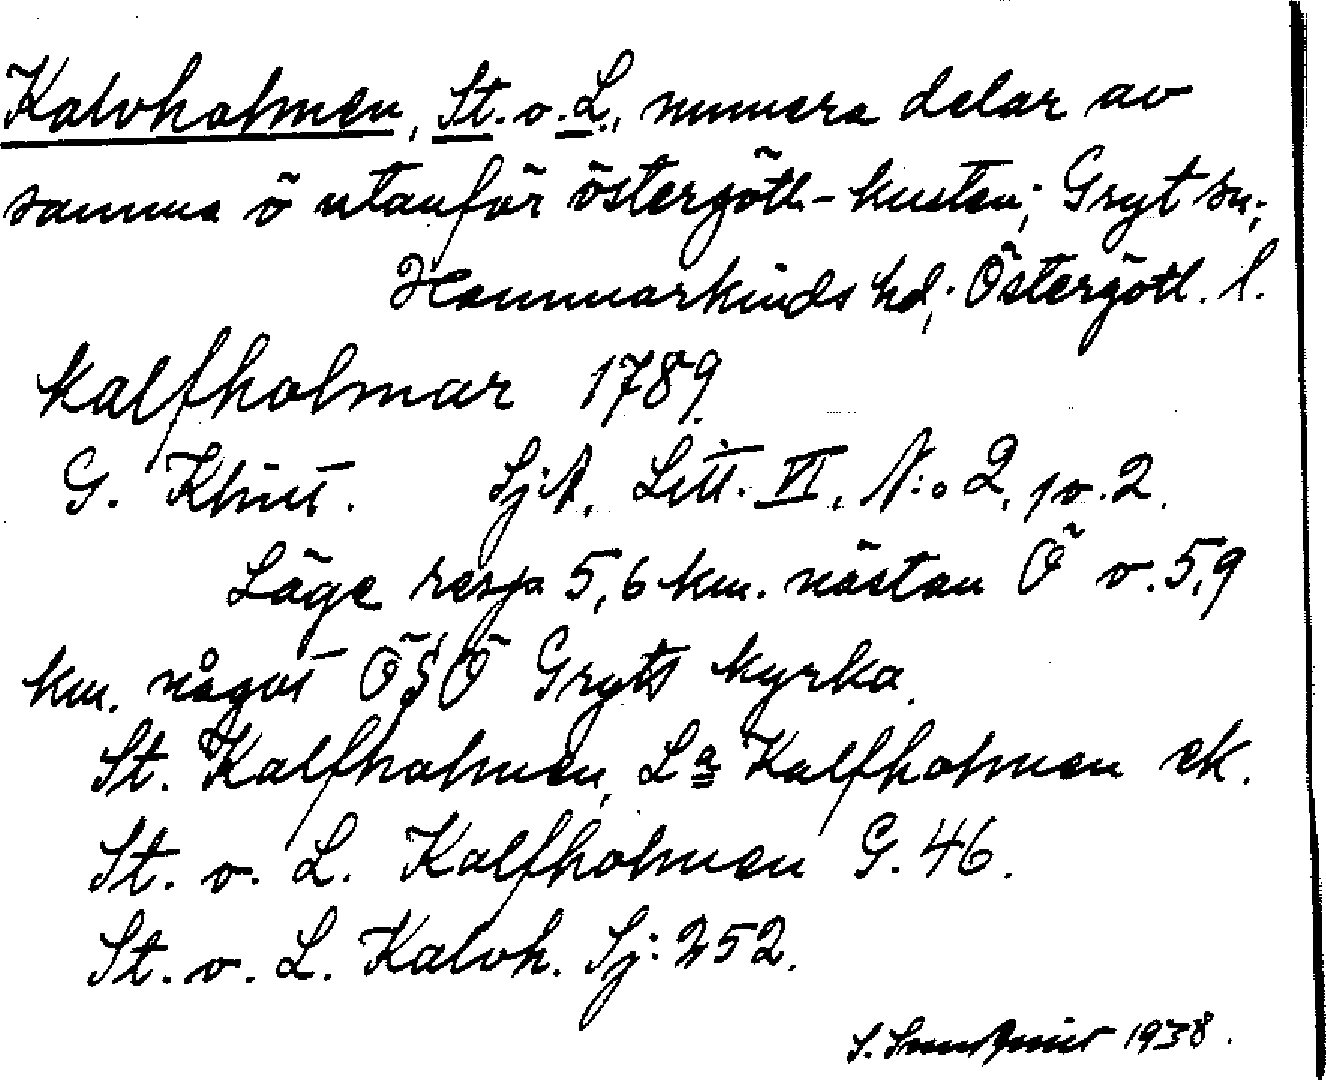 Kalvholmen, St. o. L., numera delar av
samma ö utanför östergötl-kusten; Gryt sn;
Hammarkinds hd; Östergötl. l.
Kalfholmar 1789.
G. Klint. SjA, Litt. VI, N:o 2, p. 2.
Läge resp 5,6 km. nästan Ö o. 5,9
km. något ÖSÖ Gryts kyrka.
St. Kalfholmen, La Kalfholmen ek.
St. o. L. Kalfholmen G. 46.
St. o. L. Kalvh. Sj: 252.
S. 1938.